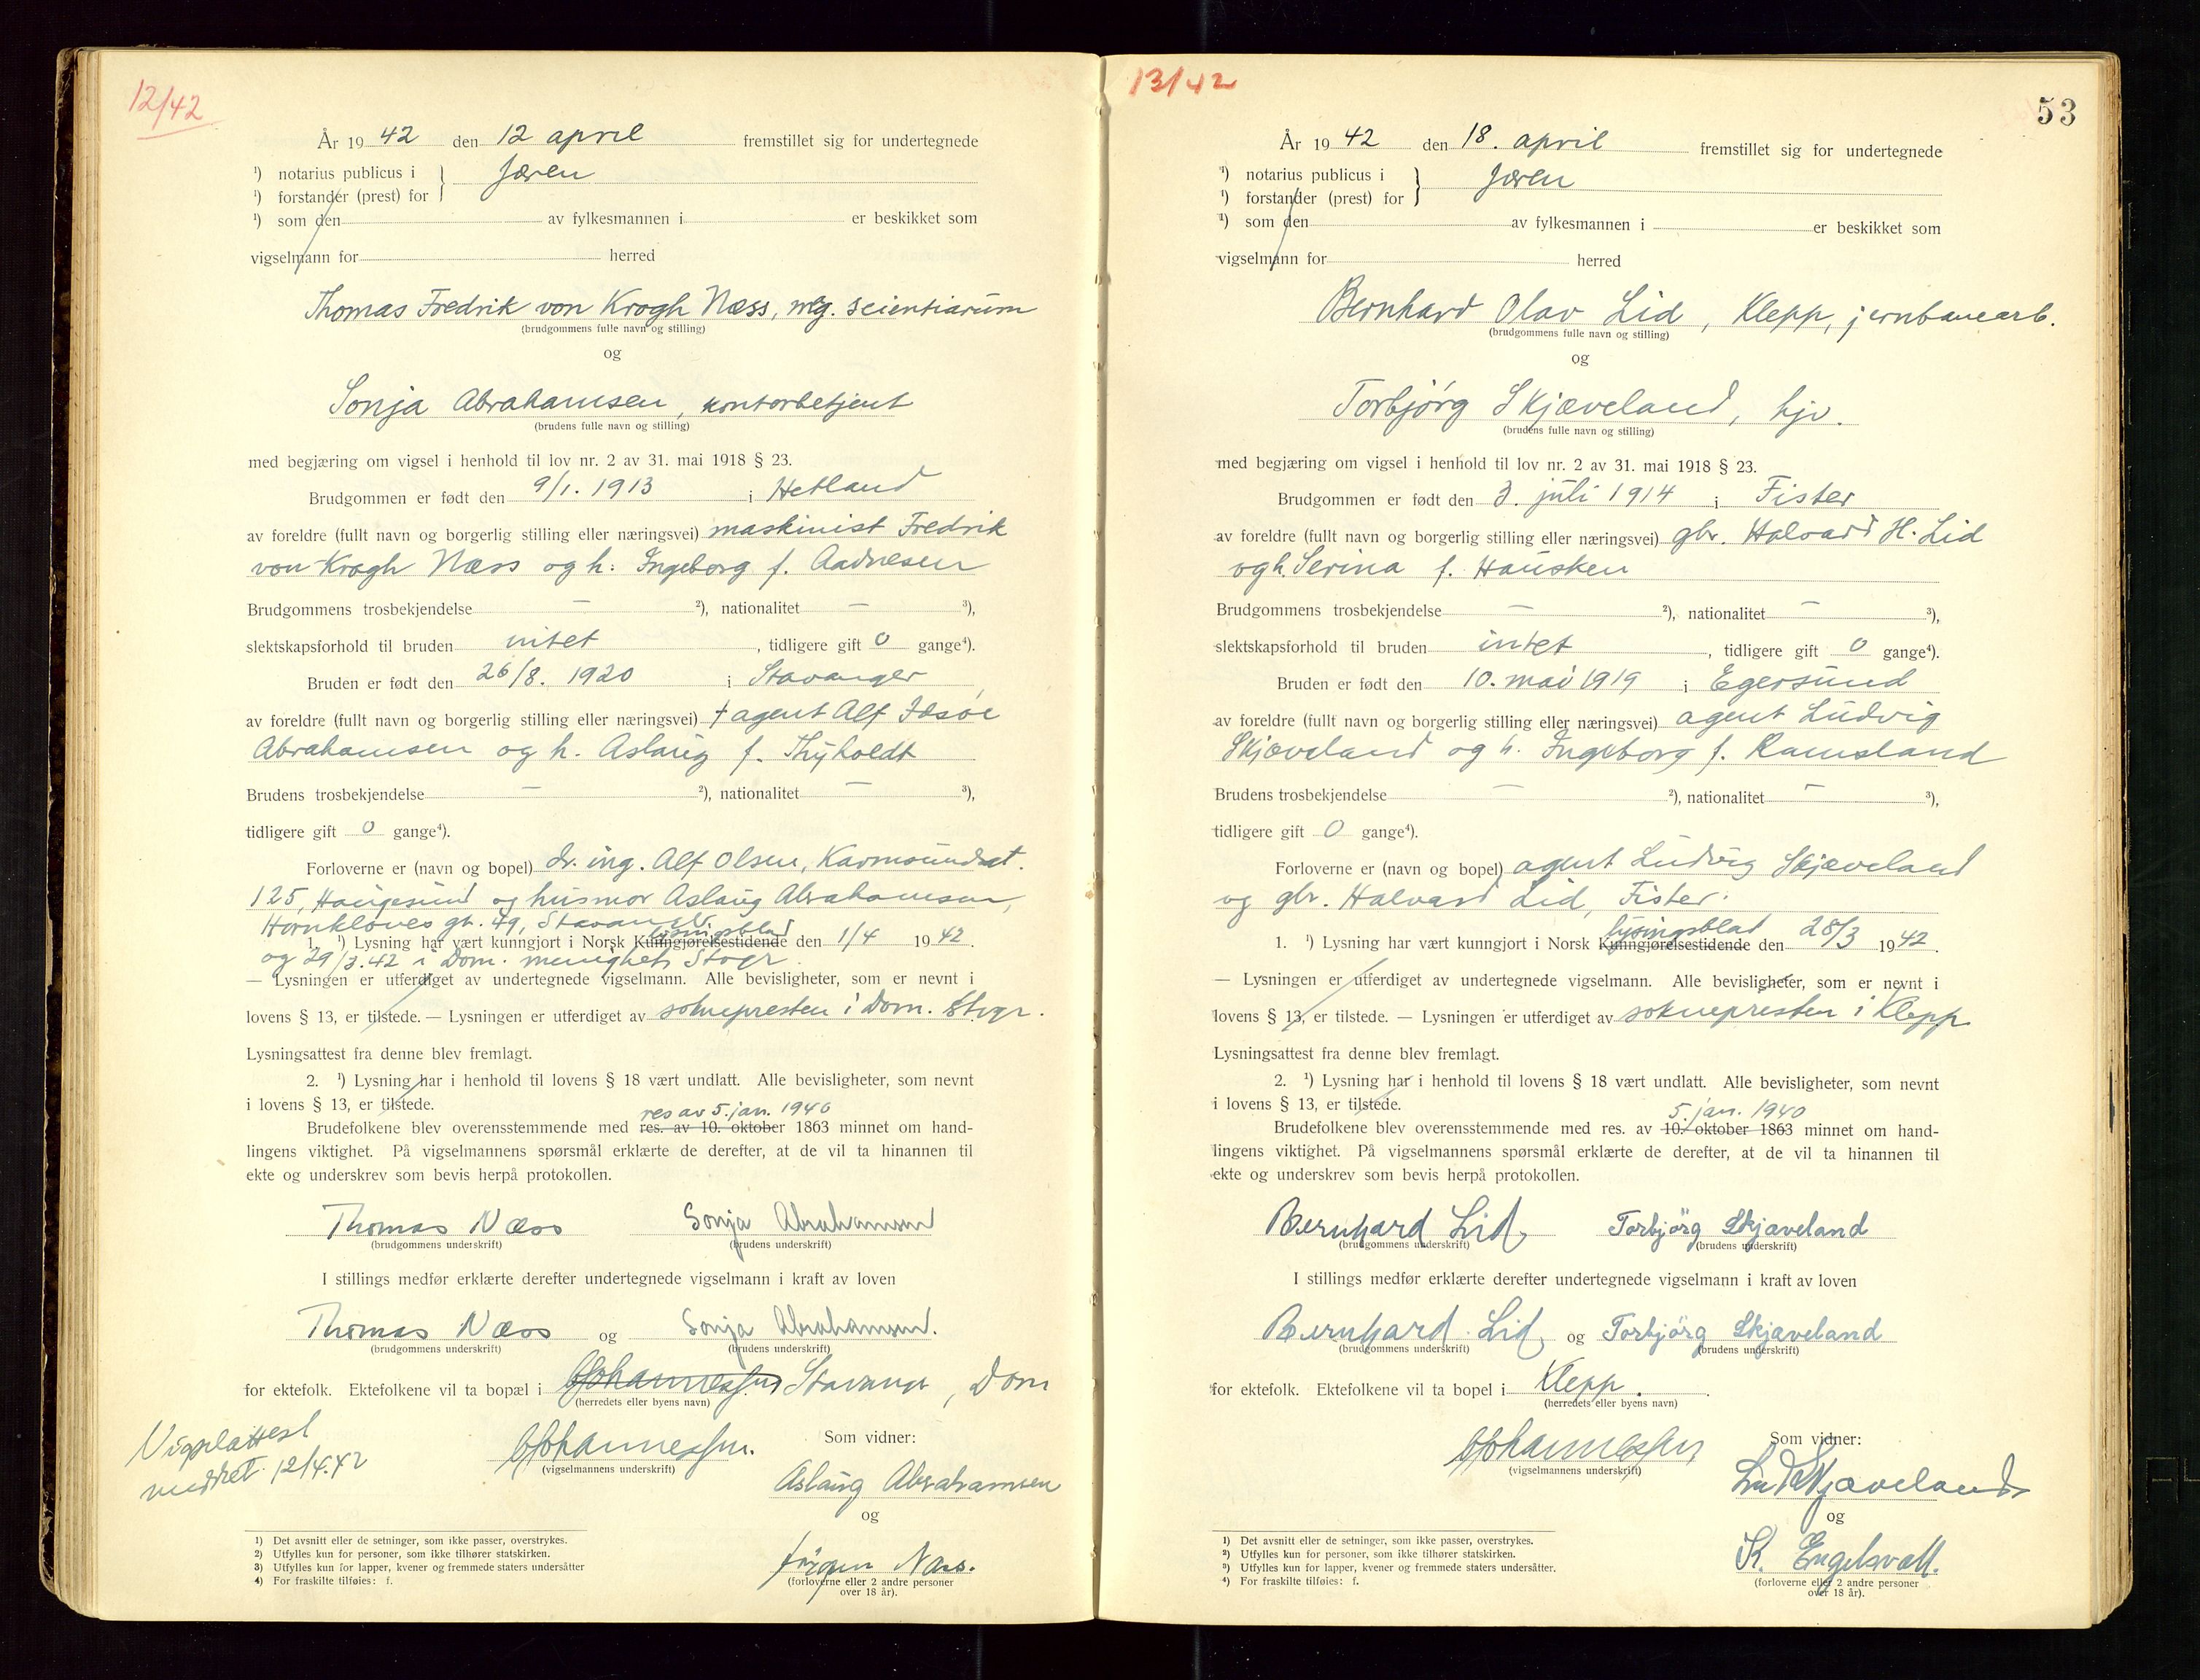 12/42
År 19 42 den 12 april fremstillet sig for undertegnede
¹) notarius publicus i } Jæren
¹) forstander (prest) for
¹) som den av fylkesmannen i er beskikket som
vigselmann for herred
Thomas Fredrik von Krogh Næss, mg. scientiarum
(brudgommens fulle navn og stilling)
og
Sonja Abrahamsen, kontorbetjent
(brudens fulle navn og stilling)
med begjæring om vigsel i henhold til lov nr. 2 av 31. mai 1918 § 23.
Brudgommen er født den 9/1. 1913 i Hetland
av foreldre (fullt navn og borgerlig stilling eller næringsvei) maskinist Fredrik
von Krogh Næss og h. Ingeborg f. Aadnesen
Brudgommens trosbekjendelse — ²), nationalitet — ³),
slektskapsforhold til bruden intet, tidligere gift 0 gange⁴).
Bruden er født den 26/8. 1920 i Stavanger
av foreldre (fullt navn og borgerlig stilling eller næringsvei) † agent Alf Idsöe
Abrahamsen og h. Aslaug f. Thyholdt
Brudens trosbekjendelse — ²), nationalitet — ³),
tidligere gift 0 gange⁴).
Forloverne er (navn og bopel) dr. ing. Alf Olsen, Karmsundsgt.
125, Haugesund og husmor Aslaug Abrahamsen,
Hornkloves gt. 49, Stavanger
lysningsblad
1. ¹) Lysning har vært kunngjort i Norsk Kunngjørelsestidende den 1/4 1942.
og 29/3.42 i Dom. menighet, Stvgr.
— Lysningen er utferdiget av undertegnede vigselmann. Alle bevisligheter, som er nevnt i
lovens § 13, er tilstede. — Lysningen er utferdiget av soknepresten i Dom. Stvgr.
Lysningsattest fra denne blev fremlagt.
2. ¹) Lysning har i henhold til lovens § 18 vært undlatt. Alle bevisligheter, som nevnt
i lovens § 13, er tilstede.
res av 5. jan. 1940
Brudefolkene blev overensstemmende med res. av 10. oktober 1863 minnet om hand-
lingens viktighet. På vigselmannens spørsmål erklærte de derefter, at de vil ta hinannen til
ekte og underskrev som bevis herpå protokollen.
Thomas Næss Sonja Abrahamsen
(brudgommens underskrift) (brudens underskrift)
I stillings medfør erklærte derefter undertegnede vigselmann i kraft av loven
Thomas Næss og Sonja Abrahamsen.
(brudgommens underskrift) (brudens underskrift)
for ektefolk. Ektefolkene vil ta bopæl i Stavanger, Dom
(herredets eller byens navn)
Vigselattest
meddelt 12/4.42
Johannessen. Som vidner:
(vigselmannens underskrift)
Aslaug Abrahamsen
og
Jörgen Næss.
(forloverne eller 2 andre personer
over 18 år).
1) Det avsnitt eller de setninger, som ikke passer, overstrykes.
2) Utfylles kun for personer, som ikke tilhører statskirken.
3) Utfylles kun for lapper, kvener og fremmede staters undersåtter
4) For fraskilte tilføies: f.
13/42
53
År 19 42 den 18. april fremstillet sig for undertegnede
¹) notarius publicus i } Jæren
¹) forstander (prest) for
¹) som den av fylkesmannen i er beskikket som
vigselmann for herred
Bernhard Olav Lid, Klepp, jernbanearb.
(brudgommens fulle navn og stilling)
og
Torbjörg Skjæveland, hjv.
(brudens fulle navn og stilling)
med begjæring om vigsel i henhold til lov nr. 2 av 31. mai 1918 § 23.
Brudgommen er født den 3. juli 1914 i Fister
av foreldre (fullt navn og borgerlig stilling eller næringsvei) gbr. Halvard H. Lid
og h. Serina f. Hausken
Brudgommens trosbekjendelse — ²), nationalitet — ³),
slektskapsforhold til bruden intet, tidligere gift 0 gange⁴).
Bruden er født den 10. mai 1919 i Egersund
av foreldre (fullt navn og borgerlig stilling eller næringsvei) agent Ludvig
Skjæveland og h. Ingeborg f. Ramsland
Brudens trosbekjendelse — ²), nationalitet — ³),
tidligere gift 0 gange⁴).
Forloverne er (navn og bopel) agent Ludvig Skjæveland
og gbr. Halvard Lid, Fister.
lysingsblad
1. ¹) Lysning har vært kunngjort i Norsk Kunngjørelsestidende den 28/3 1942.
— Lysningen er utferdiget av undertegnede vigselmann. Alle bevisligheter, som er nevnt i
lovens § 13, er tilstede. — Lysningen er utferdiget av soknepresten i Klepp
Lysningsattest fra denne blev fremlagt.
2. ¹) Lysning har i henhold til lovens § 18 vært undlatt. Alle bevisligheter, som nevnt
i lovens § 13, er tilstede.
5. jan. 1940
Brudefolkene blev overensstemmende med res. av 10. oktober 1863 minnet om hand-
lingens viktighet. På vigselmannens spørsmål erklærte de derefter, at de vil ta hinannen til
ekte og underskrev som bevis herpå protokollen.
Bernhard Lid, Torbjörg Skjæveland
(brudgommens underskrift) (brudens underskrift)
I stillings medfør erklærte derefter undertegnede vigselmann i kraft av loven
Bernhard Lid, og Torbjörg Skjæveland
(brudgommens underskrift) (brudens underskrift)
for ektefolk. Ektefolkene vil ta bopel i Klepp.
(herredets eller byens navn)
Johannessen Som vidner:
(vigselmannens underskrift)
Lud Skjæveland
og
K. Engelsvoll.
(forloverne eller 2 andre personer
over 18 år).
1) Det avsnitt eller de setninger, som ikke passer, overstrykes.
2) Utfylles kun for personer, som ikke tilhører statskirken.
3) Utfylles kun for lapper, kvener og fremmede staters undersåtter.
4) For fraskilte tilføies: f.